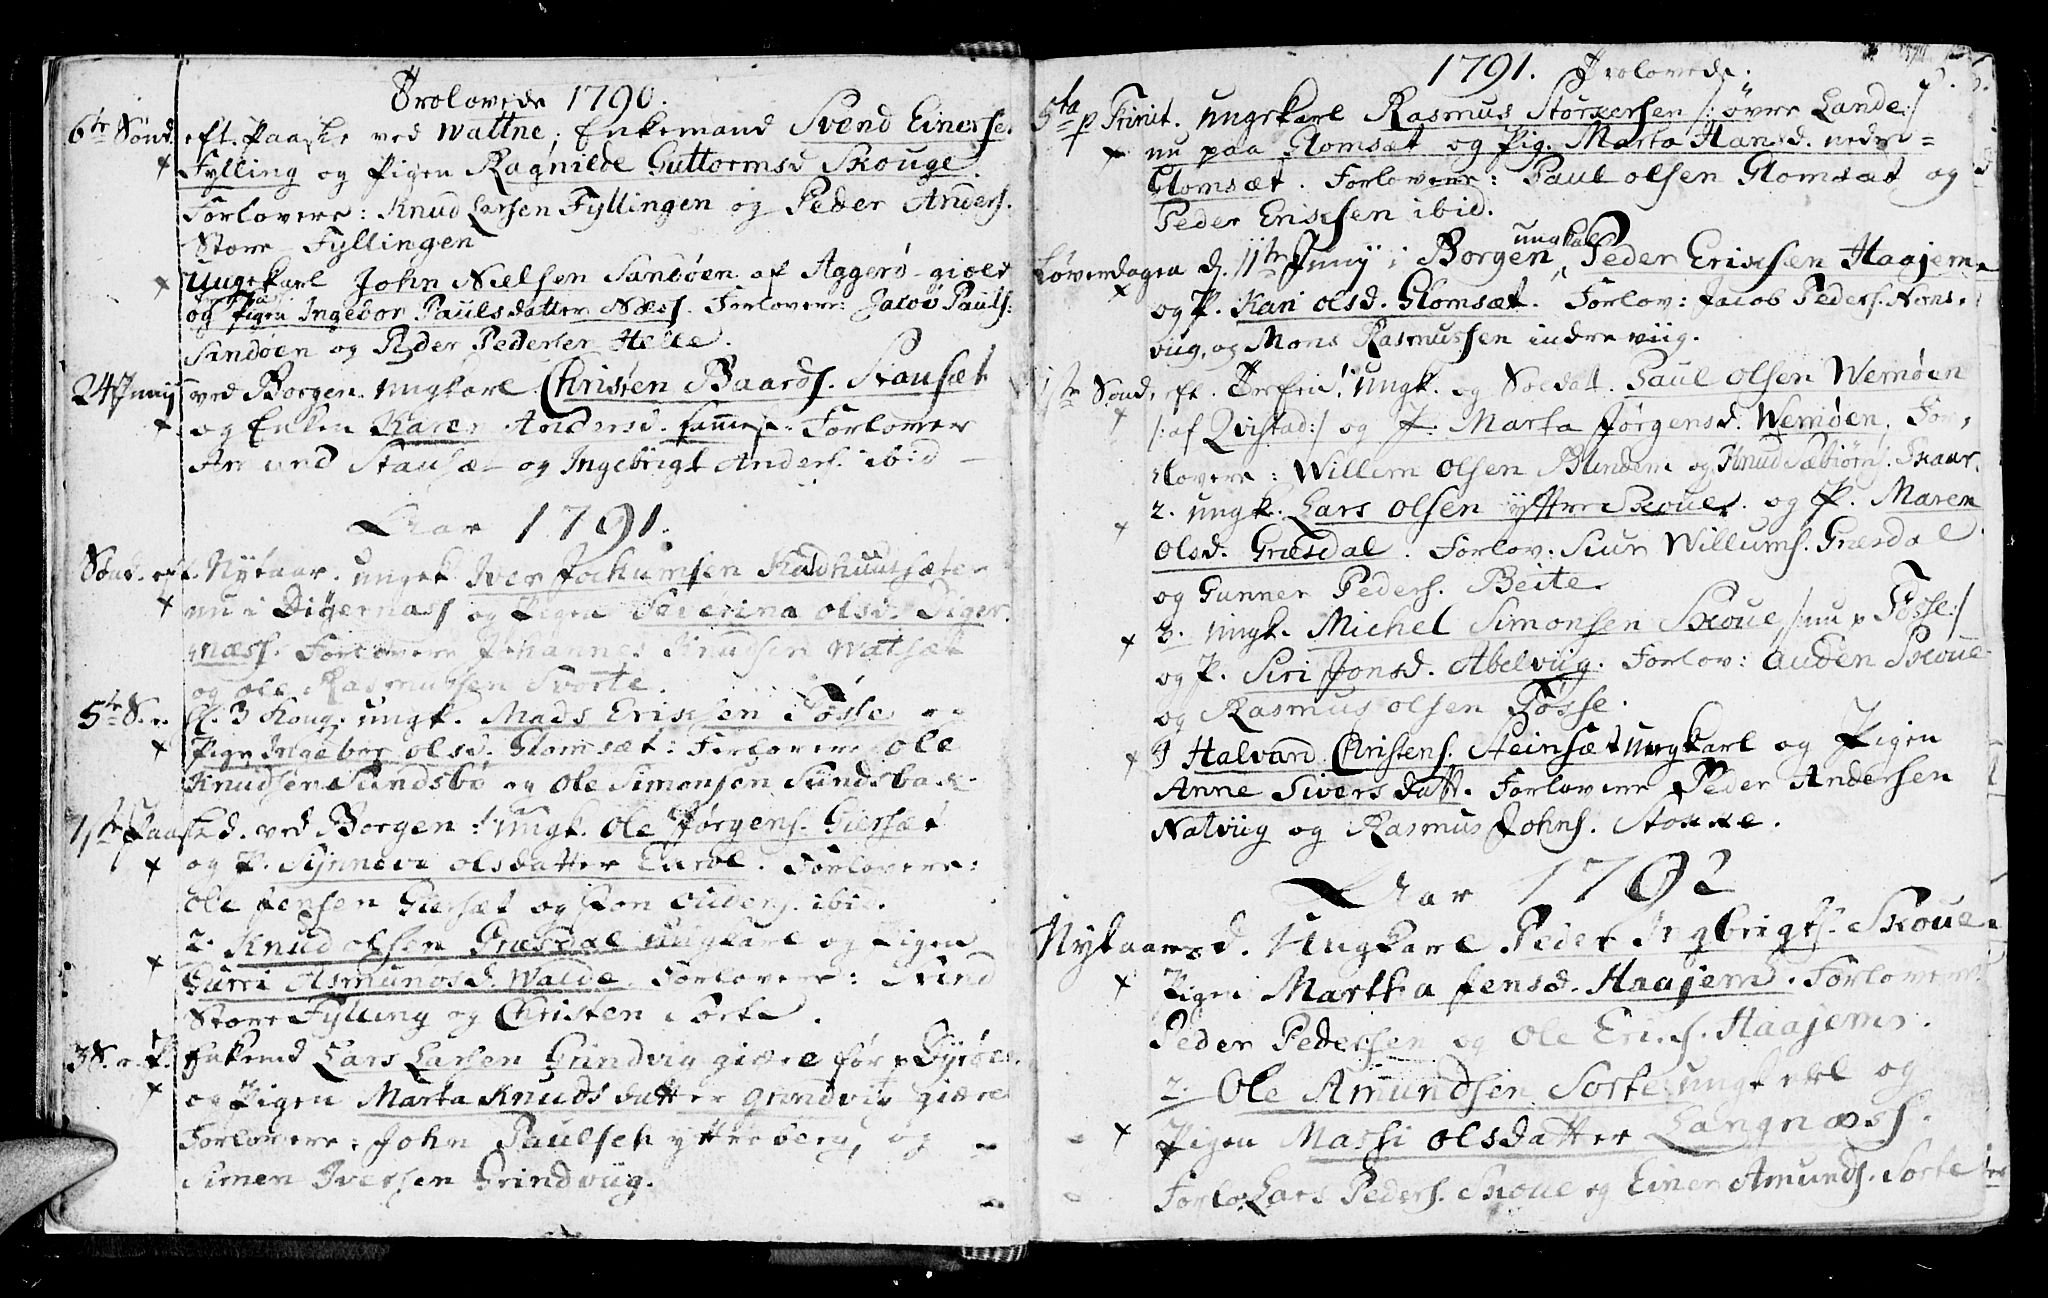 Trolovede 1790.
6te Sønd. eft. Paaske ved Wattne; Enkemand Svend Einerse.
Fylling og Pigen Ragnilde Guttormsd Skouge.
Forlovere: Knud Larsen Fyllingen og Peder Anders.
Store Fyllingen
Ungekarl John Nielsen Sandøen af Aggerø giæld
og Pigen Ingebor Paulsdatter Næss. Forlovere: Jacob Pauls:
Sandøen og Peder Pedersen Helle.
24 Junij ved Borgen. ungkarl Christen Baards. Stausæt
og Enken Karen Andersd. sammest. Forlover
Amund Stausæt og Ingebrigt Anders. ibid
Aar 1791.
Sønd. eft. Nytaar. ungk Iver Jochumsen Kaldhuussæter
nu i Digernæss og Pigen Severina olsd. Diger
næss. Forlovere Johannes Knudsen Watsæt
og ole Rasmussen Svorte.
5te S. e. H. 3 Kong. ungk. Mads Erixsen Tøsse og
Pige Ingebor olsd. Glomsæt: Forlovere ole
Knudsen Sundsbø og Ole Simonsen Sundsbak.
1ste Paasked. ved Borgen: 1 ungk. Ole Jørgens. Giersæt
og P. Synneve olsdatter Eikrol. Forlovere:
Ole Jensen Giersæt og Jon Oudens. ibid.
2. Knud olsen Græsdal ungkarl og Pigen
Gurri Asmundsd. Walde. Forlovere: Svend
Store Fylling og Christen Sorte.
3 S. e. P. Enkemd Lars Larsen Grindvig giære før p Dyrøe.
og Pigen Marta Knudsdatter grindvig giære
Forlovere: John Paulsen yttreberg, og
Simen Iversen Grindviig.
1791. Trolovede.
5ta p Trinit. ungekarl Rasmus Storxersen /: øvre Lande:/
nu paa Glomsæt og Pig. Marta Hansd. nedre=
Glomsæt. Forlovere: Paul olsen Glomsæt og
Peder Erixsen ibid.
ungkal
Løverdagen d. 11te Junij i Borgen, Peder Erixsen Haajem
og P. Kari olsd. Glomsæt. Forlov: Jacob Peders. Næns.
viig, og Mons Rasmussen indre viig.
Sønd. eft. 1 ungk. og Soldat. Paul olsen Wemøen
/: af Qvistad:/ og P. Marta Jørgensd. Wemøen, For,
lovere: Willem olsen Blindem og Knud Sæbiørns. Skaar.
2. ungk. Lars olsen yttre Skoue. og P. Maren
olsd. Græsdal. Forlov: Siur Willums. Græsdal
og Gunner Peders. Beite.
3. ungk. Michel Simonsen Skoue, /: nu p Tøsse:/
og P. Siri Jonsd. Abelviig. Forlov: Auden Skoue
og Rasmus olsen Tøsse.
4 Halvard Christens. Steinsæt ungkarl og Pigen
Anne Siversdatt. Forlovere Peder Andersen
Natviig og Rasmus Johns. Stokke.
Aar 1792
Nytaarsd. Ungkarl Peder Ingbrigts. Skoue
Pigen Martha Jensd. Haajem. Forlovere
Peder Pedersen og Ole Eric.s. Haajem.
2. Ole Amundsen Sorte ungkarl og
Pigen Massi olsdatter Langnæss.
Forlo. Lars Peders. Skoue og Einer Amunds. Sorte